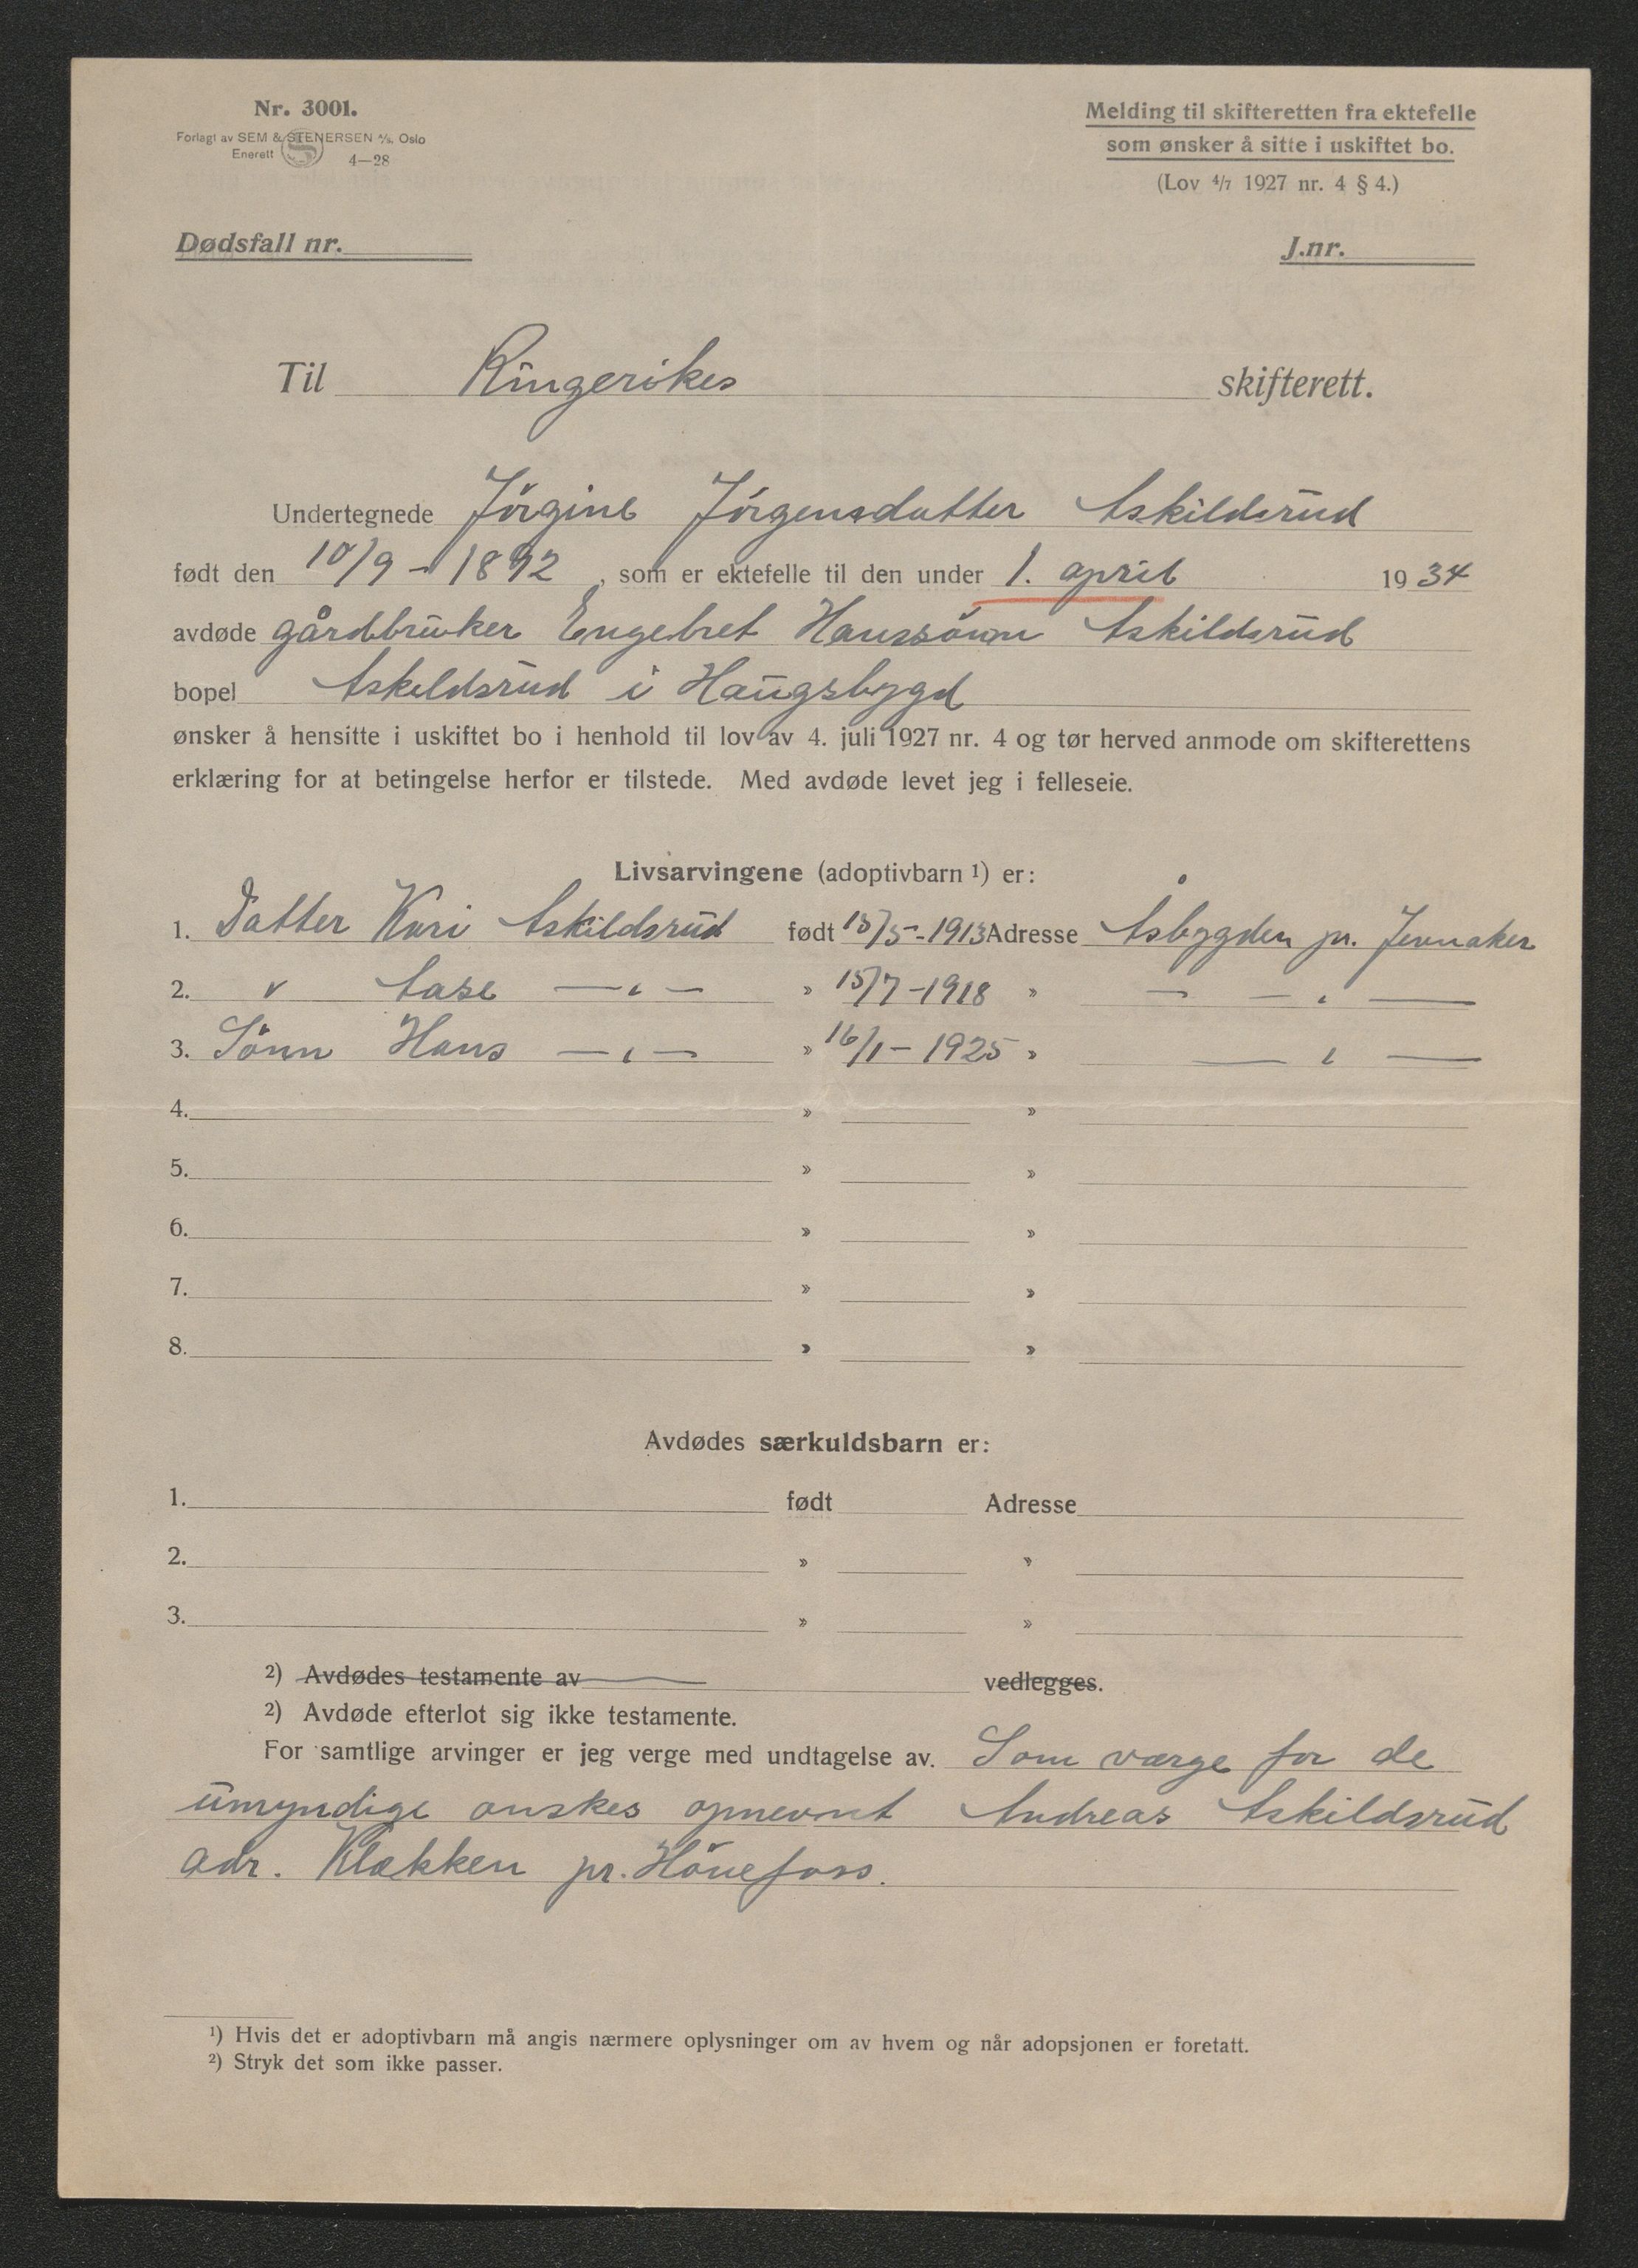 Nr. 3001.
Forlagt av SEM & STENERSEN A/S. Oslo
Enerett 4—28
Melding til skifteretten fra ektefelle
som ønsker å sitte i uskiftet bo.
(Lov 4/7 1927 nr. 4 § 4.)
Dødsfall nr.
J.nr.
Til Ringerikes skifterett.
Undertegnede Jörgine Jörgensdatter Askildsrud
født den 10/9 - 1892, som er ektefelle til den under 1. april 1934
avdøde gårdbruker Engebret Hanssönn Askildsrud
bopel Askildsrud i Haugsbygd
ønsker å hensitte i uskiftet bo i henhold til lov av 4. juli 1927 nr. 4 og tør herved anmode om skifterettens
erklæring for at betingelse herfor er tilstede. Med avdøde levet jeg i felleseie.
Livsarvingene (adoptivbarn 1) er:
1. Datter Kari Askildsrud født 15/5-1913 Adresse Åsbygden pr. Jevnaker
2. " Aase — " — » 15/7-1918 » — — " —
3. Sönn Hans — " — » 16/1-1925 » — " —
4. » »
5. » »
6. » »
7. » »
8. » »
Avdødes særkuldsbarn er:
1. født Adresse
2. » »
3. » »
2) Avdødes testamente av vedlegges.
2) Avdøde efterlot sig ikke testamente.
For samtlige arvinger er jeg verge med undtagelse av. Som værge for de
umyndige önskes opnevnt Andreas Askildsrud
adr. Klækken pr. Hönefoss.
1) Hvis det er adoptivbarn må angis nærmere oplysninger om av hvem og når adopsjonen er foretatt.
2) Stryk det som ikke passer.